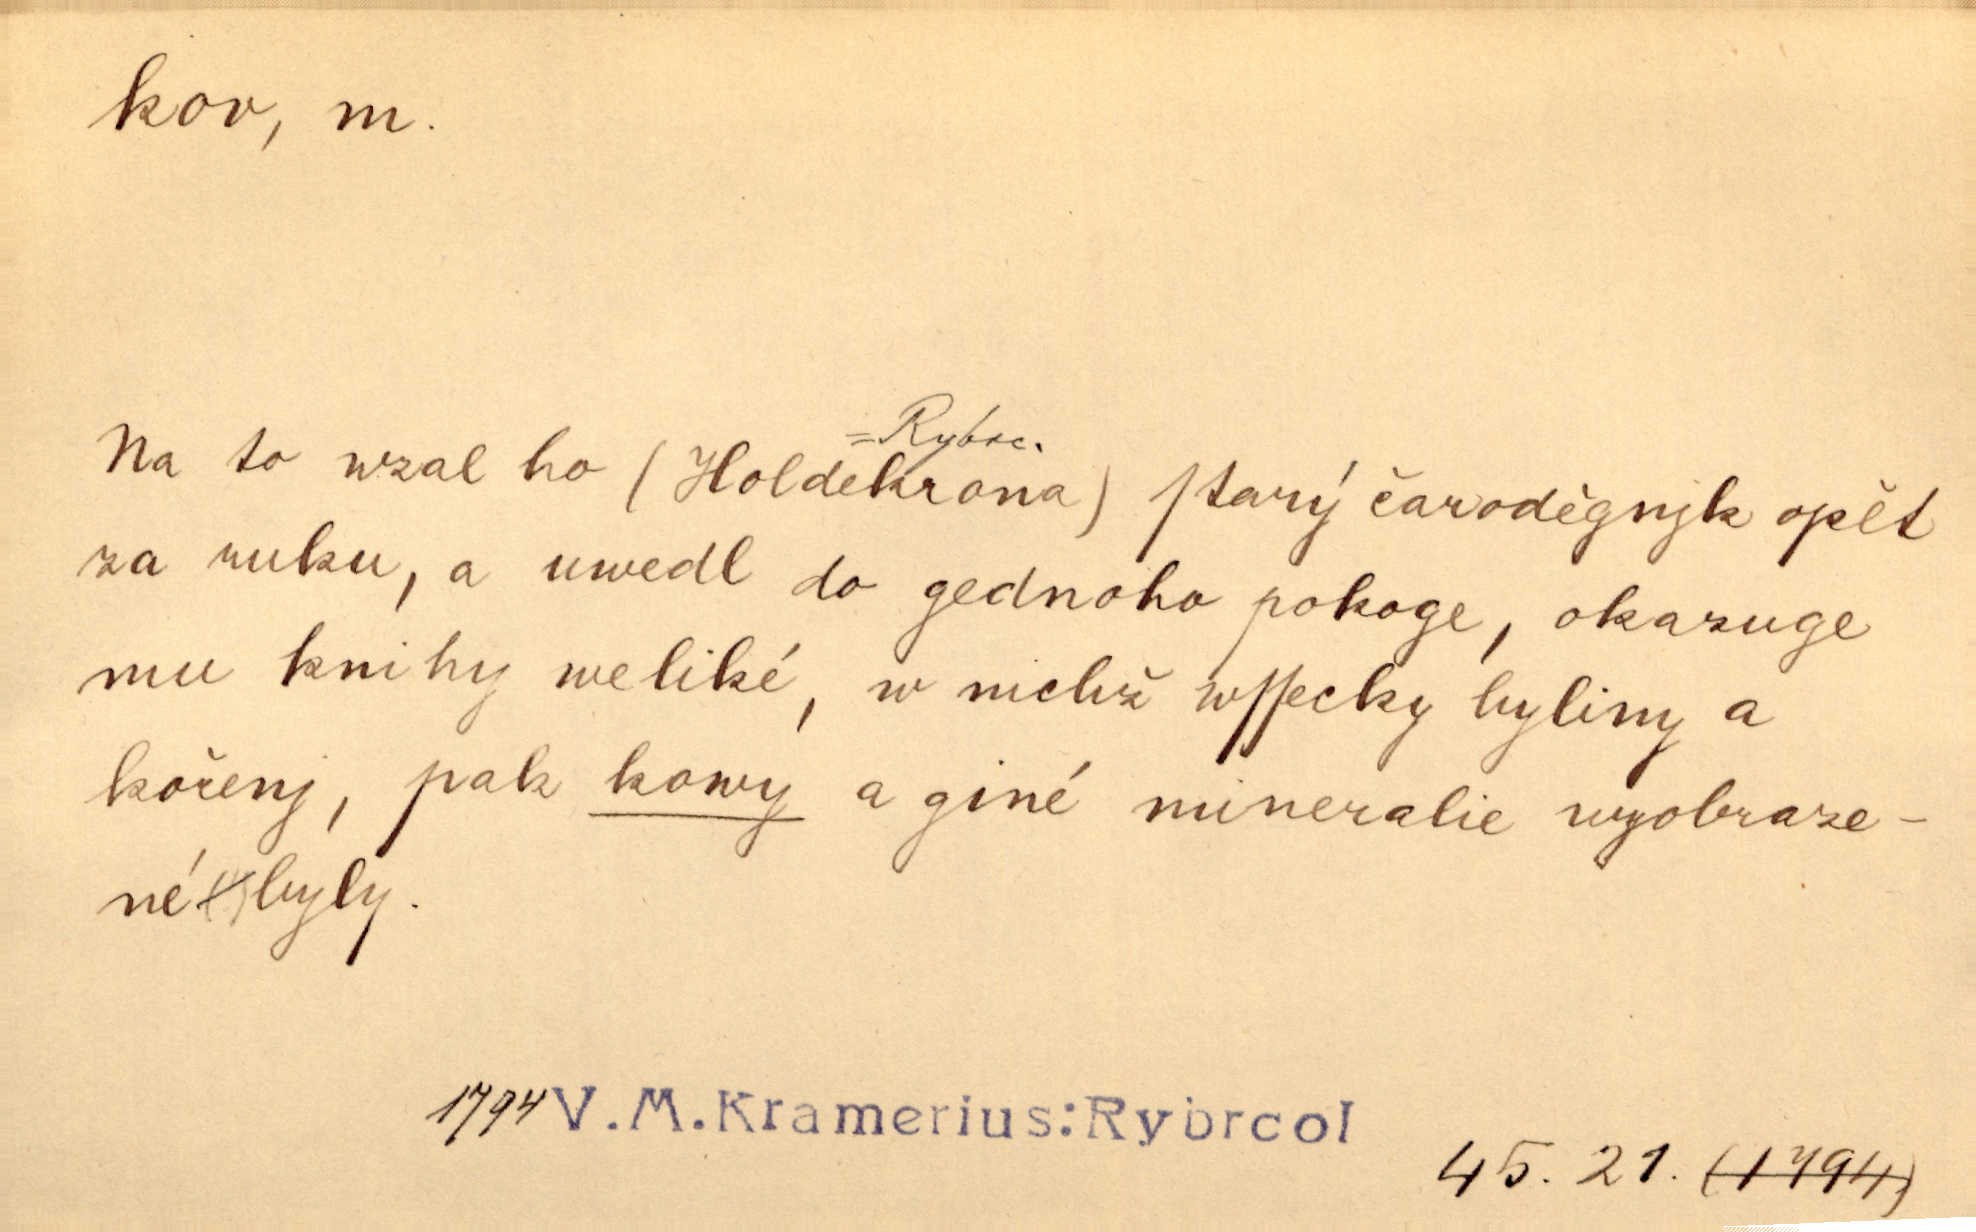 kov, m.
=Rybrc.
Na to wzal ho (Holdekrona) ſtarý čaroděgnjk opět
za ruku, a uwedl do gednoho pokoge, okazuge
mu knihy weliké, w nichž wſſecky byliny a
kořenj, pak kowy a giné mineralie wyobraze-
né byly.
1794 V.M.Kramerius:Rybrcol
45. 21. (1794)